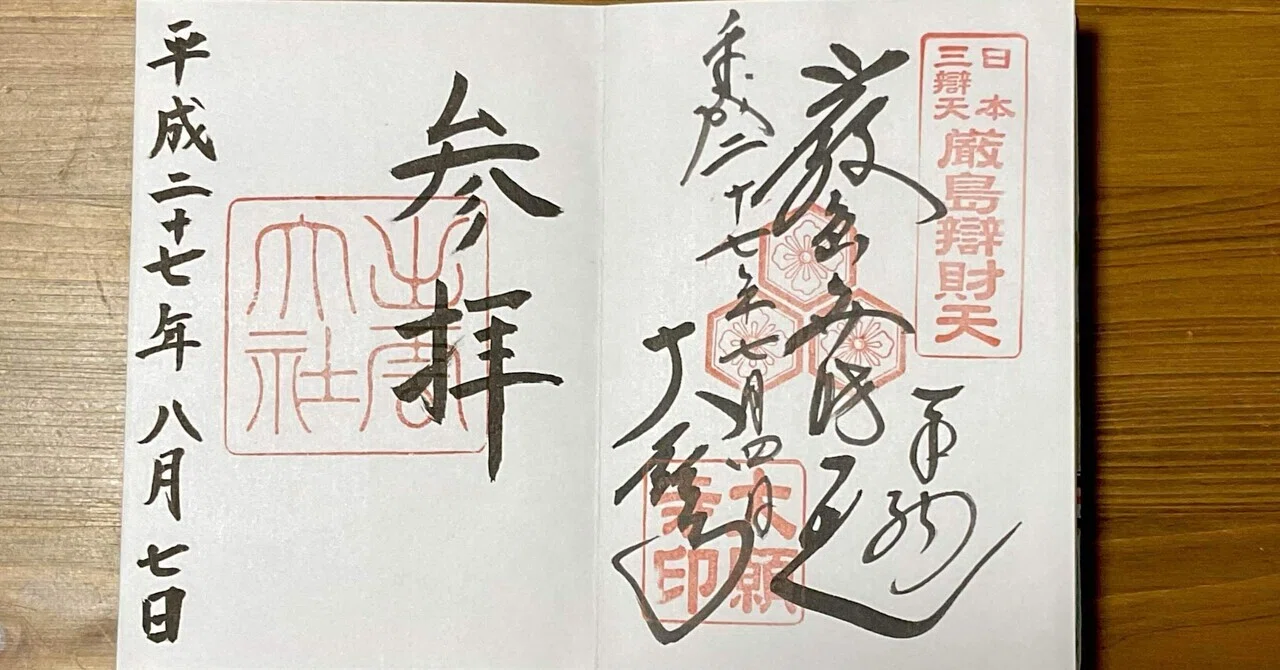 日本
三辯天
厳島辯財天
厳島弁財天
平成二十七年七月四日
大願寺
大願
寺印
参拝
出雲
大社
平成二十七年八月七日